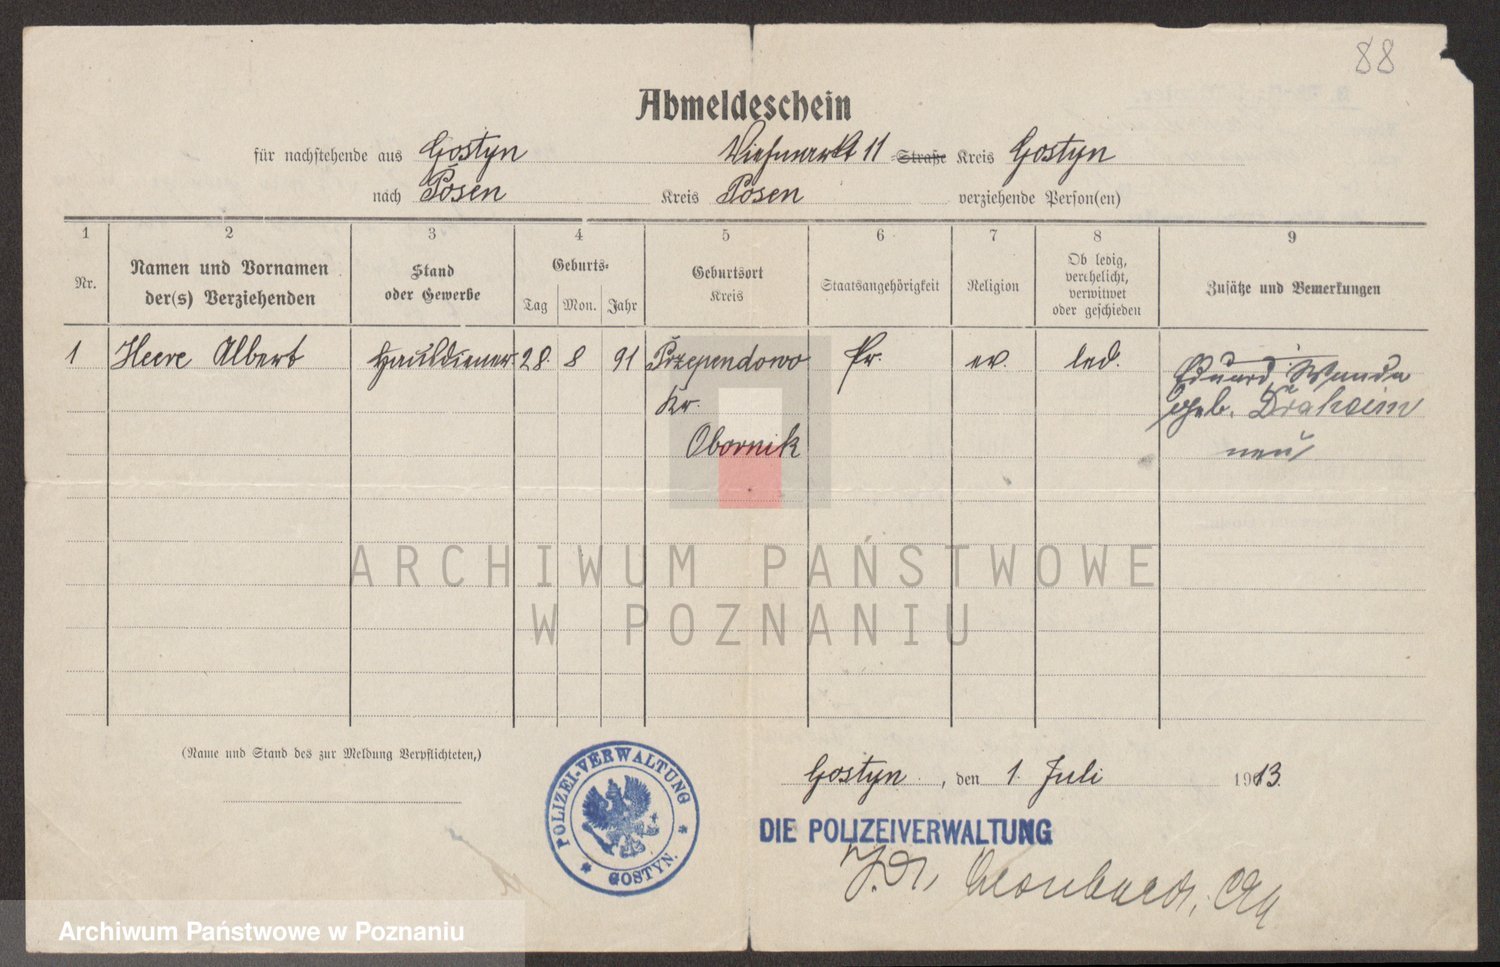 88
Abmeldeschein
für nachstehende aus Gostyn Viehmarkt 11 Straße Kreis Gostyn
nach Posen Kreis Posen verziehende Person(en)
1 2 3 4 5 6 7 8 9
Nr. Namen und Vornamen der(s) Verziehenden Stand oder Gewerbe Geburts- Tag Mon. Jahr Geburtsort Kreis Staatsangehörigkeit Religion Ob ledig, verehelicht, verwitwet oder geschieden Zusätze und Bemerkungen
1 Heere Albert Hausdiener 28. 8 91 Przependowo Pr. ev. led. Eduard, Wanda
Kr. geb. Draheim
Obornik
ARCHIWUM PAŃSTWOWE
W POZNANIU
(Name und Stand des zur Meldung Verpflichteten,)
POLIZEI-VERWALTUNG * GOSTYN. *
Gostyn, den 1. Juli 1913.
DIE POLIZEIVERWALTUNG
Archiwum Państwowe w Poznaniu